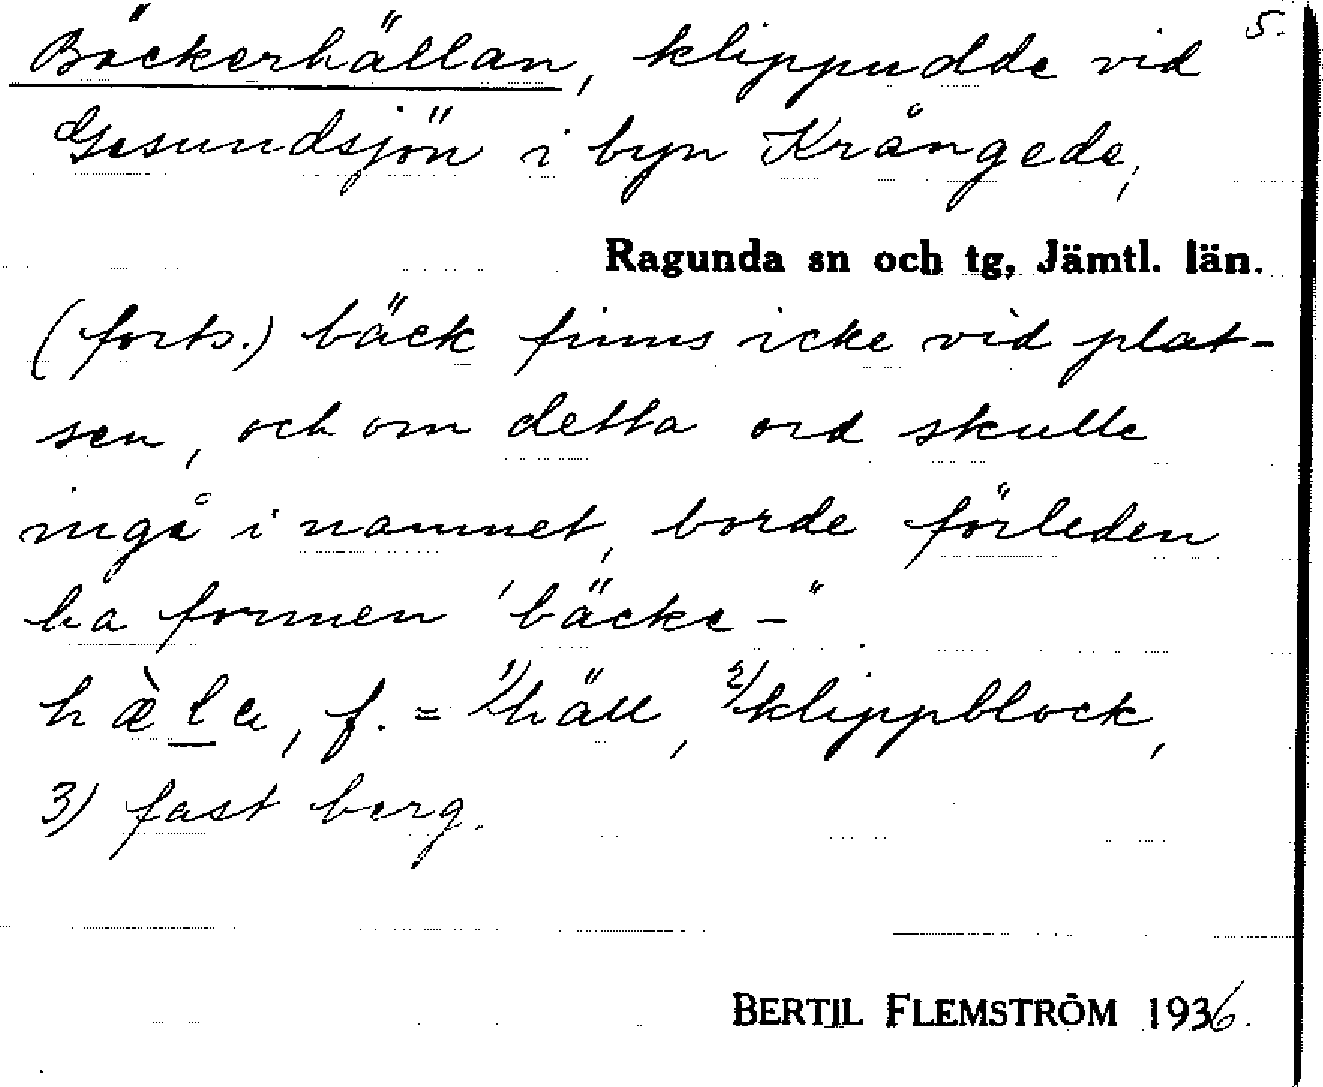 5.
Bäckerhällan, klippudde vid
Gesundsjön i byn Krångede,
Ragunda sn och tg, Jämtl. län.
(forts.) bäck finns icke vid plat-
sen, och om detta ord skulle
ingå i namnet, borde förleden
ha formen 'bäcke-"
hæ̀la, f. = 1)häll, 2)klippblock,
3) fast berg.
BERTIL FLEMSTRÖM 1936.